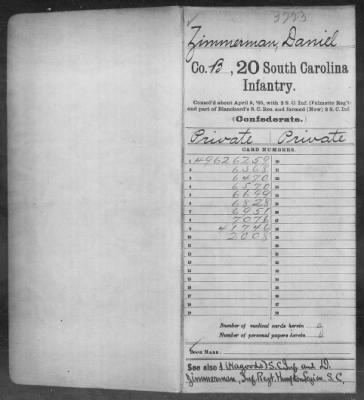 3723
Zimmerman, Daniel
Co. B, 20 South Carolina
Infantry.
Consol'd about April 9, '65, with 2 S. C. Inf. (Palmetto Reg't)
and part of Blanchard's S. C. Res. and formed (New) 2 S. C. Inf.
(Confederate.)
Private Private
CARD NUMBERS.
1 49626259
2 6368
3 6470
4 6570
5 6699
6 6828
7 6951
8 7076
9 41746
10 2008
Number of medical cards herein 0
Number of personal papers herein
BOOK MARK:
See also 1 (Hagoods) S.C. Inf. and D.
Zimmerman, Inf. Regt. Hampton Legion S.C.